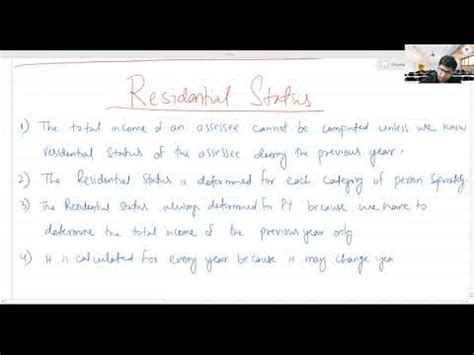 Residential Status
1) The total income of an assessee cannot be computed unless we know
residential status of the assessee during the previous year.
2) The Residential Status is determined for each category of person separately.
3) The Residential Status always determined for PY because we have to
determine the total income of the previous year only
4) It is calculated for every year because it may change yea